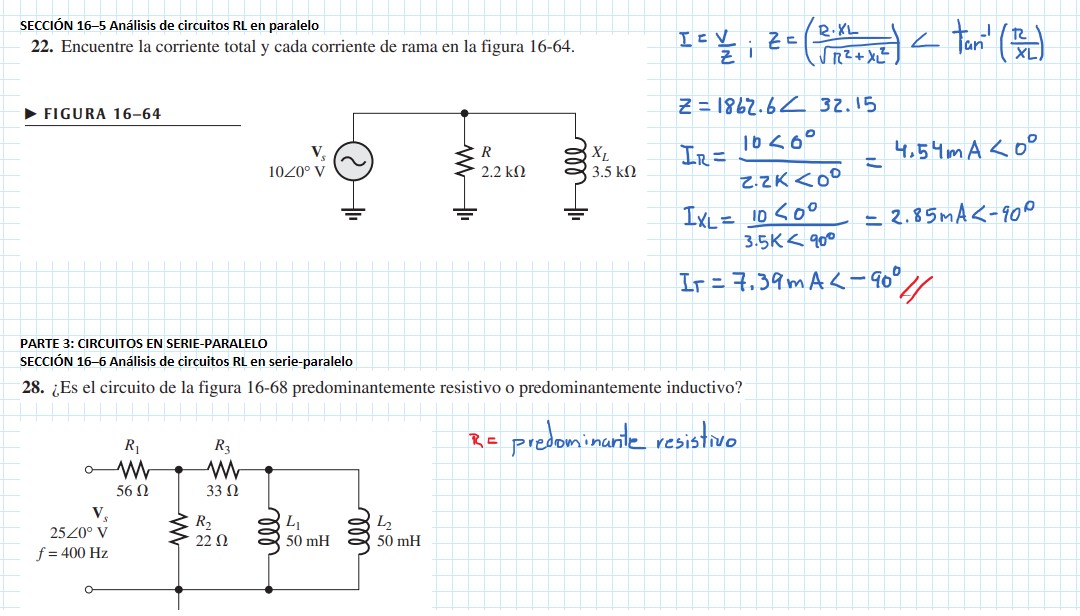 SECCIÓN 16–5 Análisis de circuitos RL en paralelo
22. Encuentre la corriente total y cada corriente de rama en la figura 16-64.
▶ FIGURA 16–64
Vs
10∠0° V
R
2.2 kΩ
XL
3.5 kΩ
I = V/Z ; Z = (R·XL / √R²+XL²) ∠ tan⁻¹ (R/XL)
Z = 1862.6∠ 32.15
IR = 10<0° / 2.2K<0° = 4.54mA<0°
IXL = 10<0° / 3.5K< 90° = 2.85mA<-90°
IT = 7.39mA<-90° //
PARTE 3: CIRCUITOS EN SERIE-PARALELO
SECCIÓN 16–6 Análisis de circuitos RL en serie-paralelo
28. ¿Es el circuito de la figura 16-68 predominantemente resistivo o predominantemente inductivo?
R= predominante resistivo
R1
56 Ω
R3
33 Ω
Vs
25∠0° V
f = 400 Hz
R2
22 Ω
L1
50 mH
L2
50 mH